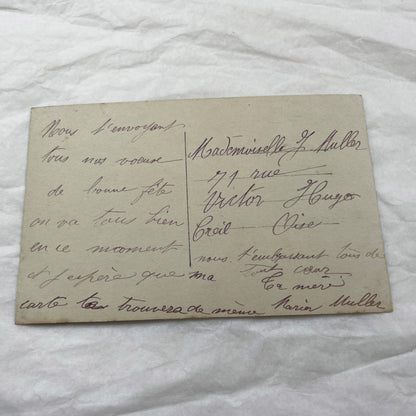 Nous t'envoyant
tous nos voeux
de bonne fête
on va tous bien
en ce moment
et j'espère que ma
carte te trouvera de même Maria Muller
Mademoiselle J Muller
71 rue
Victor Hugo
Creil Oise
nous t'embrassant tous de
tout cœur
Ta mère